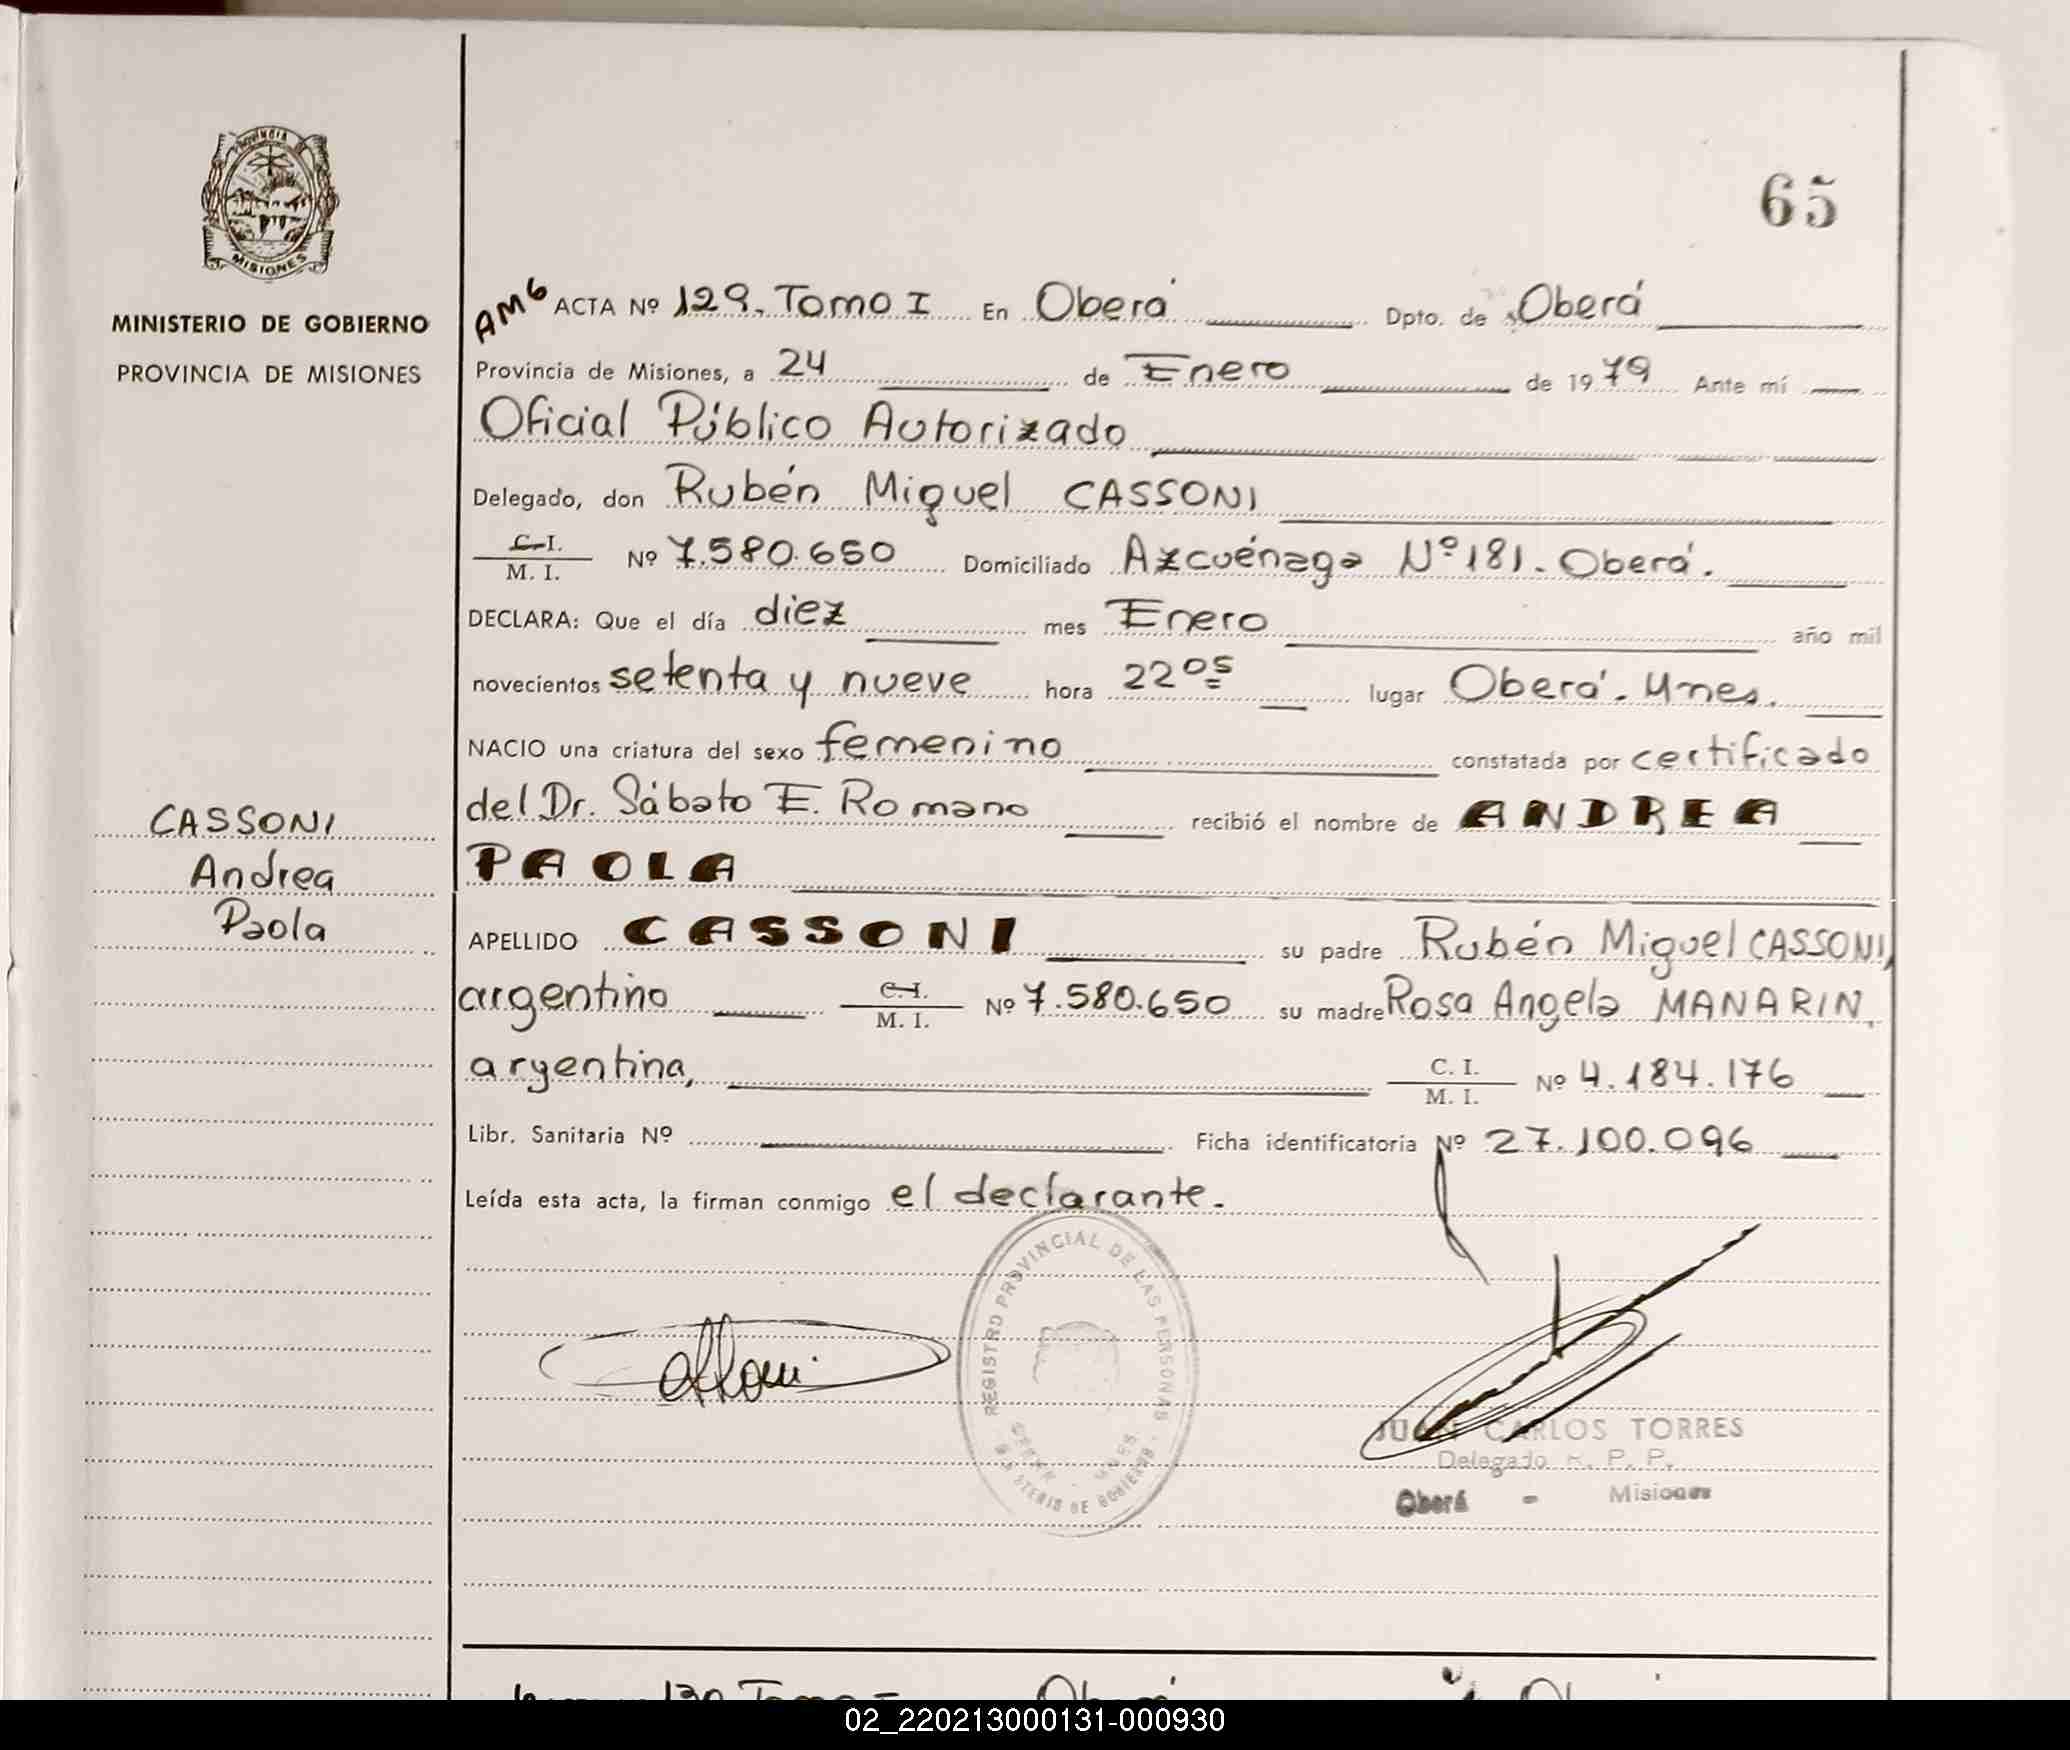 PROVINCIA DE
MISIONES
MINISTERIO DE GOBIERNO
PROVINCIA DE MISIONES
CASSONI
Andrea
Paola
65
AM6 ACTA Nº 129, Tomo I En Oberá Dpto. de Oberá
Provincia de Misiones, a 24 de Enero de 1979 Ante mí
Oficial Público Autorizado
Delegado, don Rubén Miguel CASSONI
C.I.
M. I. Nº 7.580.650 Domiciliado Azcuénaga Nº 181. Oberá.
DECLARA: Que el día diez mes Enero año mil
novecientos setenta y nueve hora 22 05 lugar Oberá. Mnes.
NACIO una criatura del sexo femenino constatada por certificado
del Dr. Sábato E. Romano recibió el nombre de ANDREA
PAOLA
APELLIDO CASSONI su padre Rubén Miguel CASSONI,
argentino C.I.
M. I. Nº 7.580.650 su madre Rosa Angela MANARIN,
argentina, C. I.
M. I. Nº 4.184.176
Libr. Sanitaria Nº Ficha identificatoria Nº 27.100.096
Leída esta acta, la firman conmigo el declarante.
REGISTRO PROVINCIAL DE LAS PERSONAS
MINISTERIO DE GOBIERNO
JUAN CARLOS TORRES
Delegado R. P. P.
Oberá - Misiones
130 Tomo I Oberá
02_220213000131-000930